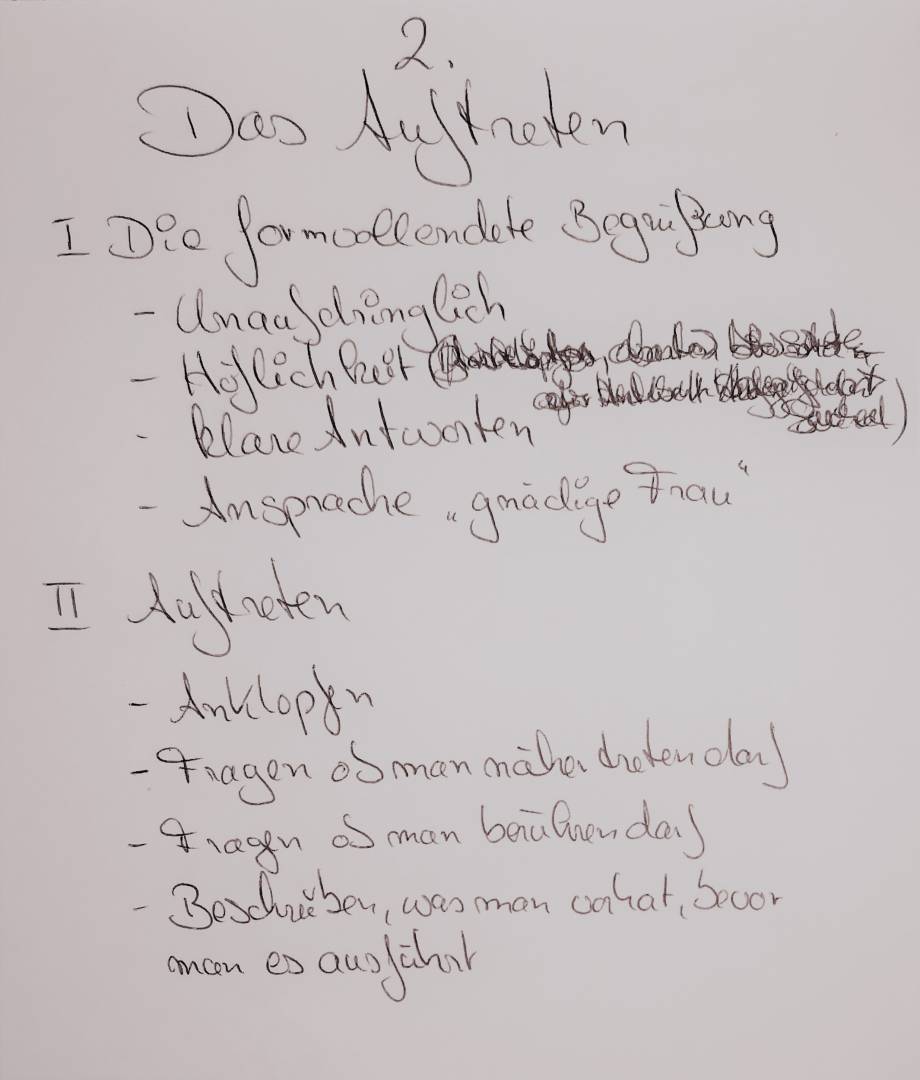 2.
Das Auftreten
I Die formvollendete Begrüßung
- Unaufdringlich
- Höflichkeit
- klare Antworten
- Ansprache „gnädige Frau“
II Auftreten
- Anklopfen
- Fragen ob man näher treten darf
- Fragen ob man berühren darf
- Beschreiben, was man vorhat, bevor
man es ausführt